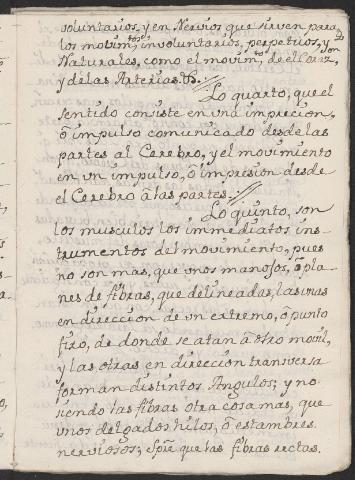 voluntarios, y en Nervios que sirven para
los movim.tos involuntarios, perpetrios, y
Naturales, como el movim.to de el Coraz.on
y de las Arterias. &.
Lo quarto, que el
sentido consiste en vna imprecion,
ô impulso comunicado desde las
partes al Cerebro, y el movimiento
en vn impulso, ô impresion desde
el Cerebro â las partes.
Lo quinto, son
los musculos los immediatos ins-
trumentos del movimiento, pues
no son mas, que vnos manojos, ô pla-
nes de fibras, que delineadas, las unas
en direccion de un extremo, ô punto
fixo, de donde se atan â otro movil,
y las otras en direccion transversa
forman distintos Angulos; y no
siendo las fibras otra cosa mas, que
vnos delgados hilos, ô estambres
nerviosos; que las fibras rectas.